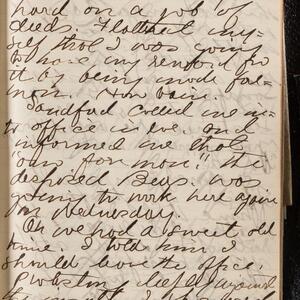 hard on a job of
deeds. Flattered my-
self that I was going
to have my reward for
it by being made for-
man. How vain.
Sandford called me in-
to office in eve. and
informed me that
"our Tom Moni" the
deposed Beas. was
going to work here again
on Wednesday.
Oh we had a sweet old
time. I told him I
should leave the office.
Webster